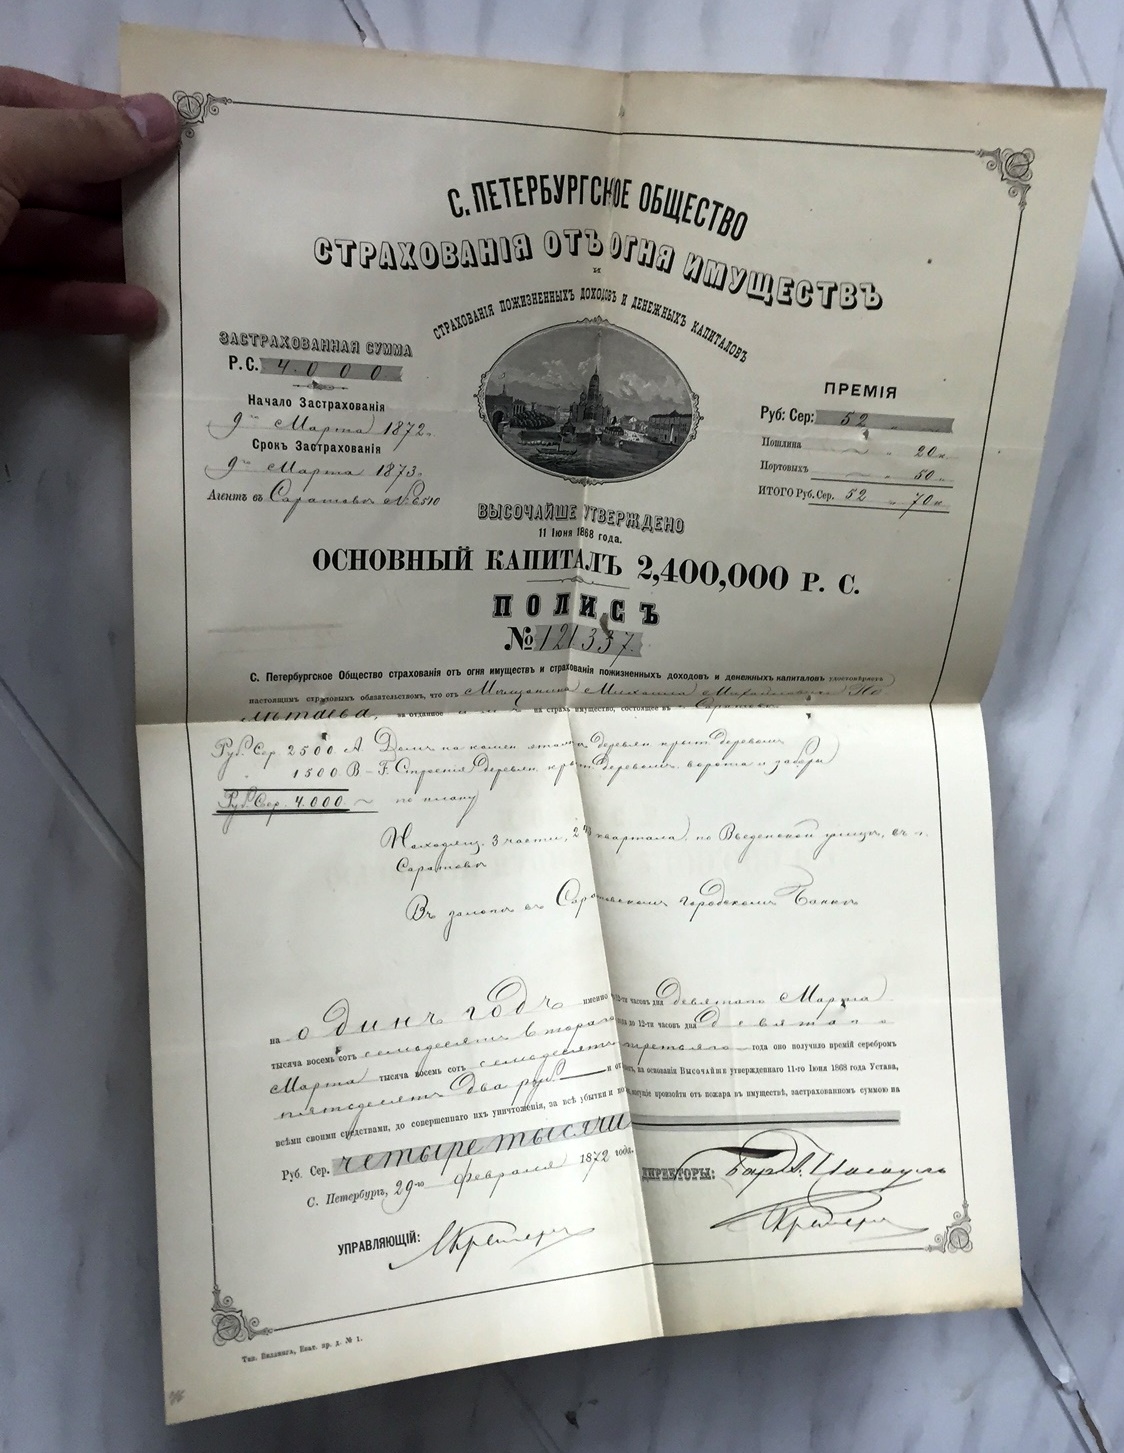 С. ПЕТЕРБУРГСКОЕ ОБЩЕСТВО
СТРАХОВАНІЯ ОТЪ ОГНЯ ИМУЩЕСТВЪ
и
СТРАХОВАНІЯ ПОЖИЗНЕННЫХЪ ДОХОДОВЪ И ДЕНЕЖНЫХЪ КАПИТАЛОВЪ
ЗАСТРАХОВАННАЯ СУММА
Р. С. 4.000
Начало Застрахованія
9го Марта 1872.
Срокъ Застрахованія
9го Марта 1873.
Агентъ въ Саратовѣ № 6510
ПРЕМІЯ
Руб: Сер: 52
Пошлина 20к
Портовыхъ 50
ИТОГО Руб. Сер. 52 70к
ВЫСОЧАЙШЕ УТВЕРЖДЕНО
11 Іюня 1868 года.
ОСНОВНЫЙ КАПИТАЛЪ 2,400,000 Р. С.
ПОЛИСЪ
№ 121337.
С. Петербургское Общество страхованія отъ огня имуществъ и страхованія пожизненныхъ доходовъ и денежныхъ капиталовъ удостовѣряетъ
настоящимъ страховымъ обязательствомъ, что отъ Мѣщанина Михаила Михайловича
на отданное на страхъ имущество, состоящее въ г. Саратовѣ
Руб. Сер. 2500 А Домъ на камен. этажѣ деревян. крыт. деревомъ
1500 В–F. Строенія деревян. крыт. деревомъ, ворота и заборы
Руб. Сер. 4.000 по плану
Находящ. 3 части, 2го квартала, по Введенской улицѣ, въ г.
Саратовѣ
Въ залогѣ въ Саратовскомъ Городскомъ Банкѣ
на одинъ годъ именно 12-ти часовъ дня Девятаго Марта
тысяча восемь сотъ семьдесятъ втораго до 12-ти часовъ дня Девятаго
Марта тысяча восемь сотъ семьдесятъ третьяго года оно получило премій серебромъ
пятьдесятъ два руб. на основаніи Высочайше утвержденнаго 11-го Іюня 1868 года Устава,
всѣми своими средствами, до совершеннаго ихъ уничтоженія, за всѣ убытки и могущіе произойти отъ пожара въ имуществѣ, застрахованномъ суммою на
Руб. Сер. четыре тысячи
С. Петербургъ, 29го Февраля 1872 года.
ДИРЕКТОРЫ:
УПРАВЛЯЮЩІЙ:
№ 1.